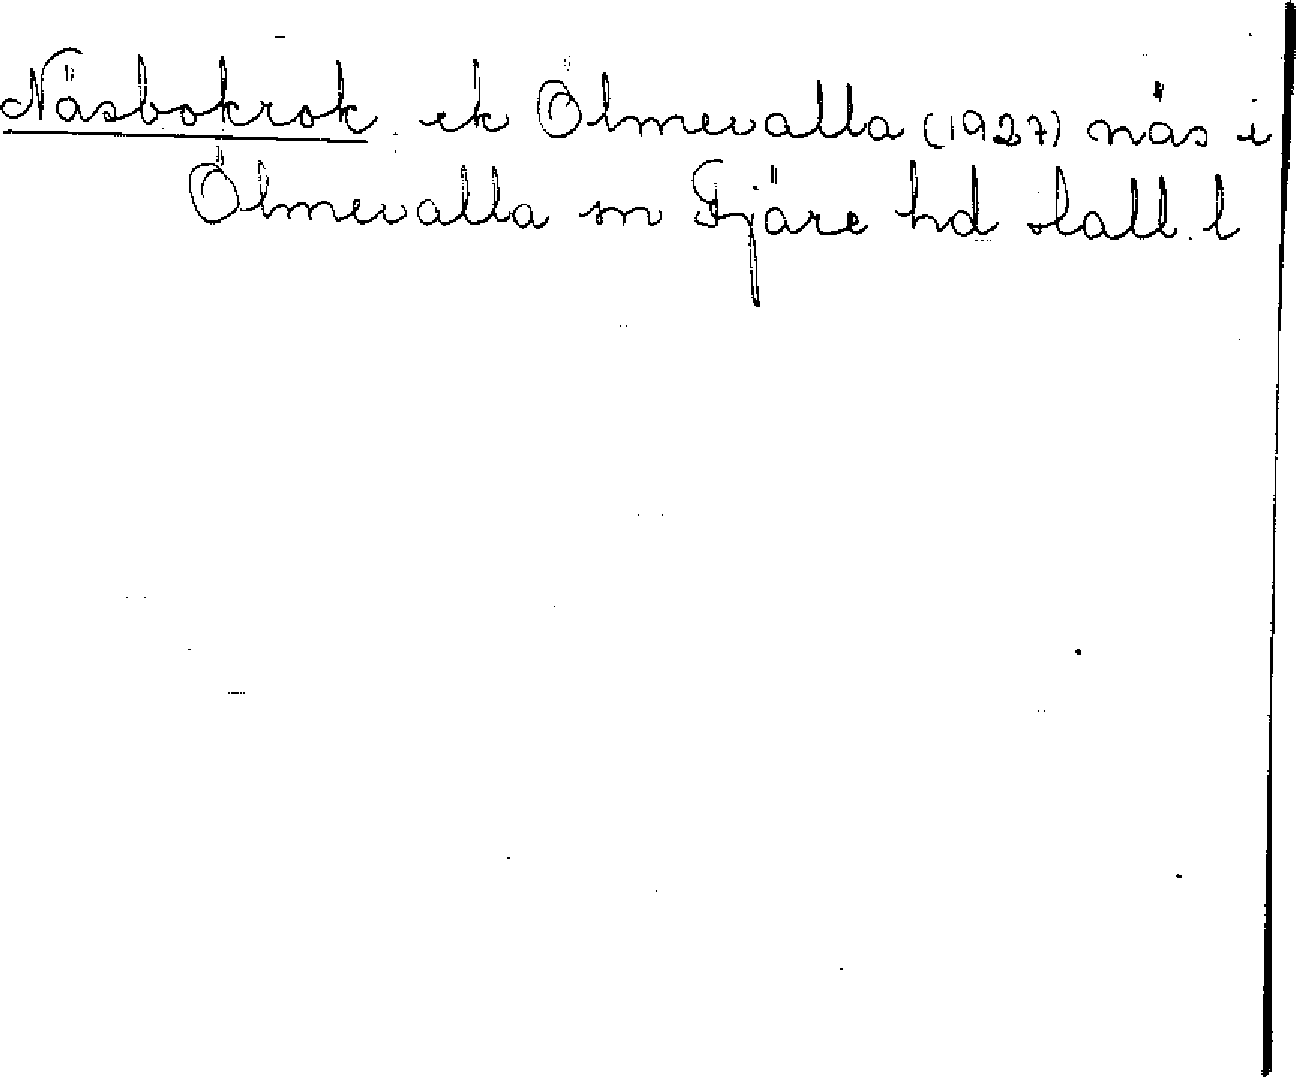 Näsbokrok ek Ölmevalla (1927) näs i
Ölmevalla sn Fjäre hd Hall. l